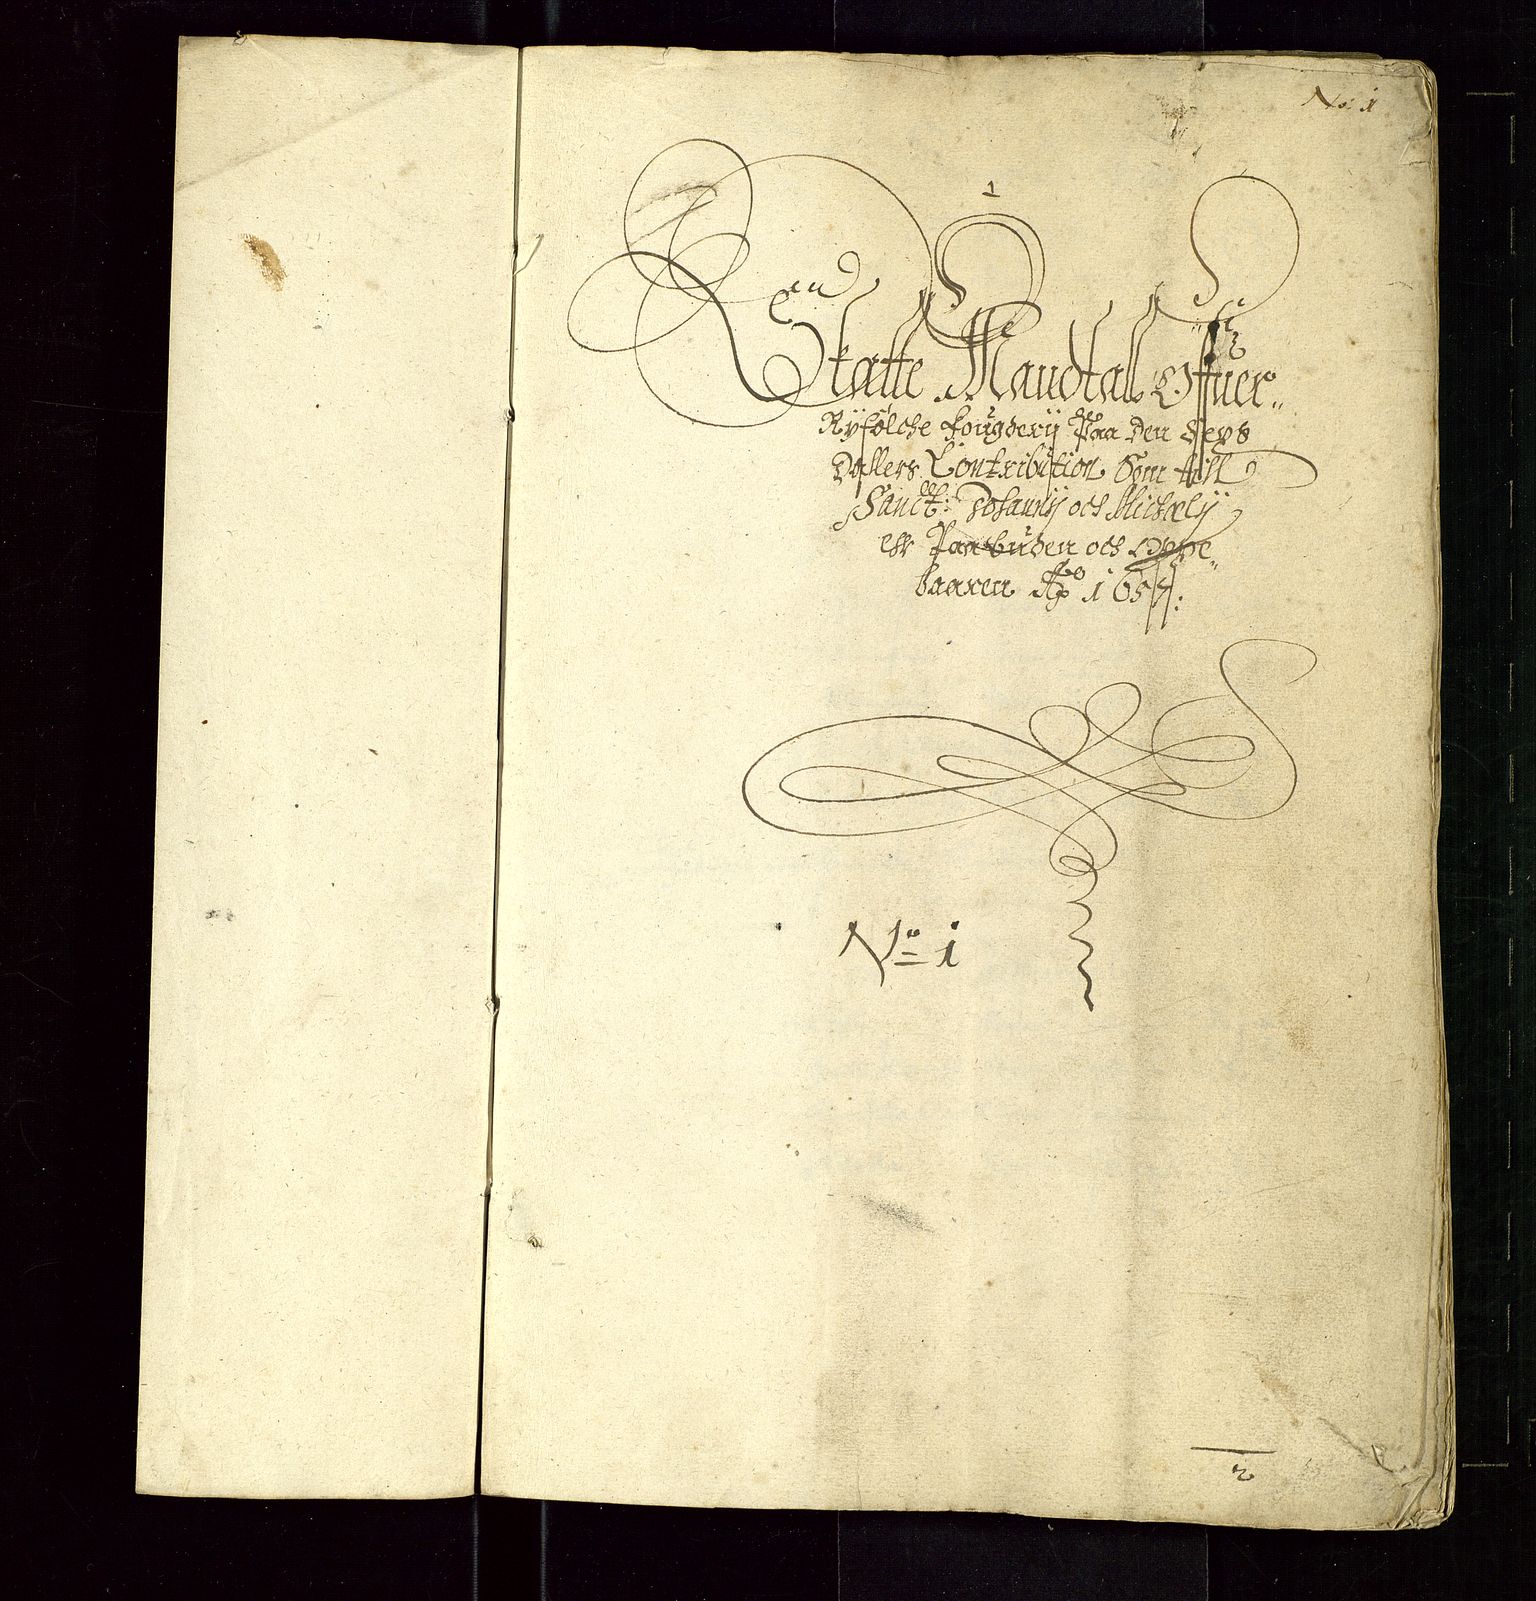 No: 1
1
Een
Skatte Mandtall Offuer
Ryfølche fougderij Paa Den Sex
Dallers Contribution Som till
Sanct: Johannij och Michelij
er Paabuden och Oppe
baaren Ao 1657:
No 1
2